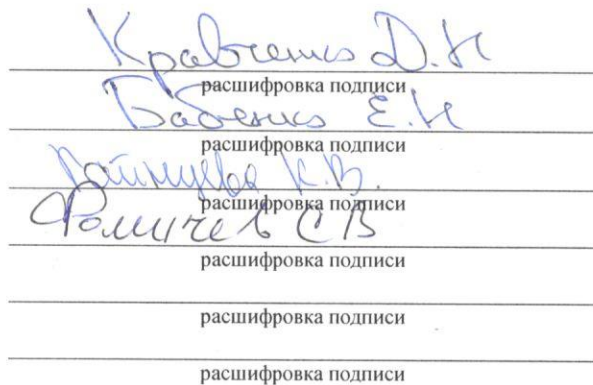 Кравченко Д.Н
расшифровка подписи
Бабенко Е.Н
расшифровка подписи
К.В.
расшифровка подписи
Фомичев С В
расшифровка подписи
расшифровка подписи
расшифровка подписи